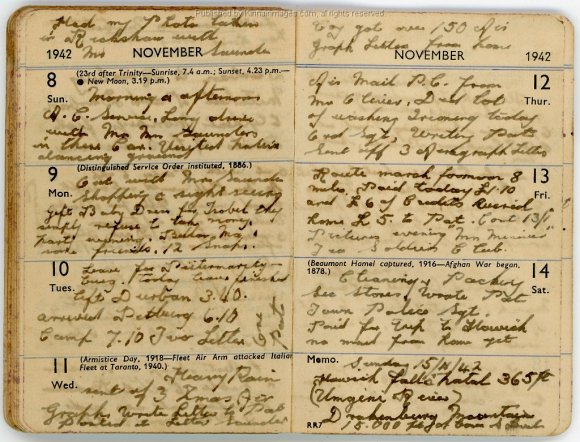 Published by Kinnairimages.com ©
Had my Photo taken
in Rickshaw with
1942 Mrs NOVEMBER Saunders
8
Sun.
(23rd after Trinity—Sunrise, 7.4 a.m.; Sunset, 4.23 p.m.—
● New Moon, 3.19 p.m.)
Morning & afternoon
A. C. Service, Long drive
with Mr Mrs Saunders
in there Car. Visited native
dancing
9
Mon.
(Distinguished Service Order instituted, 1886.)
Out with Mrs Saunders
Shopping & sight seeing
get Baby Dress for Isobel they
simply refuse to take money
party evening
some friends. 12 Snaps.
10
Tues.
Leave for Pietermaritz-
burg. Tour leave finished
left Durban 3.40.
arrived Petburg 6.10
Camp 7.10 Two Letters
11
Wed.
(Armistice Day, 1918—Fleet Air Arm attacked Italian
Fleet at Taranto, 1940.)
Heavy Rain
sent of 3 Xmas Air
Graphs wrote Letter to Pat
Posted it Letter Saunders
Boy got over 150
graph Letters from home
NOVEMBER 1942
12
Thur.
Mail P.C. from
Mrs Did lot
of washing Ironing today
Ord Sgt, Writing Pat
Sent off 3 graph Letters
13
Fri.
Route march forenoon 8
miles, Paid today £1.10
and £6 of Credits
home £5 to Pat. Cost 13/1
Pictures evening
Tea Soldiers Club.
14
Sat.
(Beaumont Hamel captured, 1916—Afghan War began,
1878.)
Cleaning & Packing
Sec Stores, Wrote Pat
Town Police Sgt.
Paid for trip to Howick
no mail from home yet
Memo.
Sunday 15/11/42
Howick falls Natal 365 ft
(Umgene River)
Drakenburg Mountain
15.000 ft
RR7